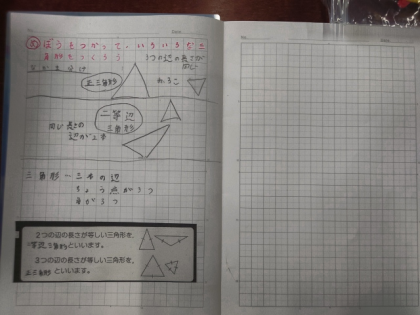 ぼうをつかって、いろいろな三
角形をつくろう
1つの辺の長さが
同じ
なかま分け
正三角形
二等辺
三角形
同じ長さの
辺が2本
三角形…三本の辺
ちょう点が3つ
角が3つ
2つの辺の長さが等しい三角形を、
二等辺三角形といいます。
3つの辺の長さが等しい三角形を、
正三角形といいます。